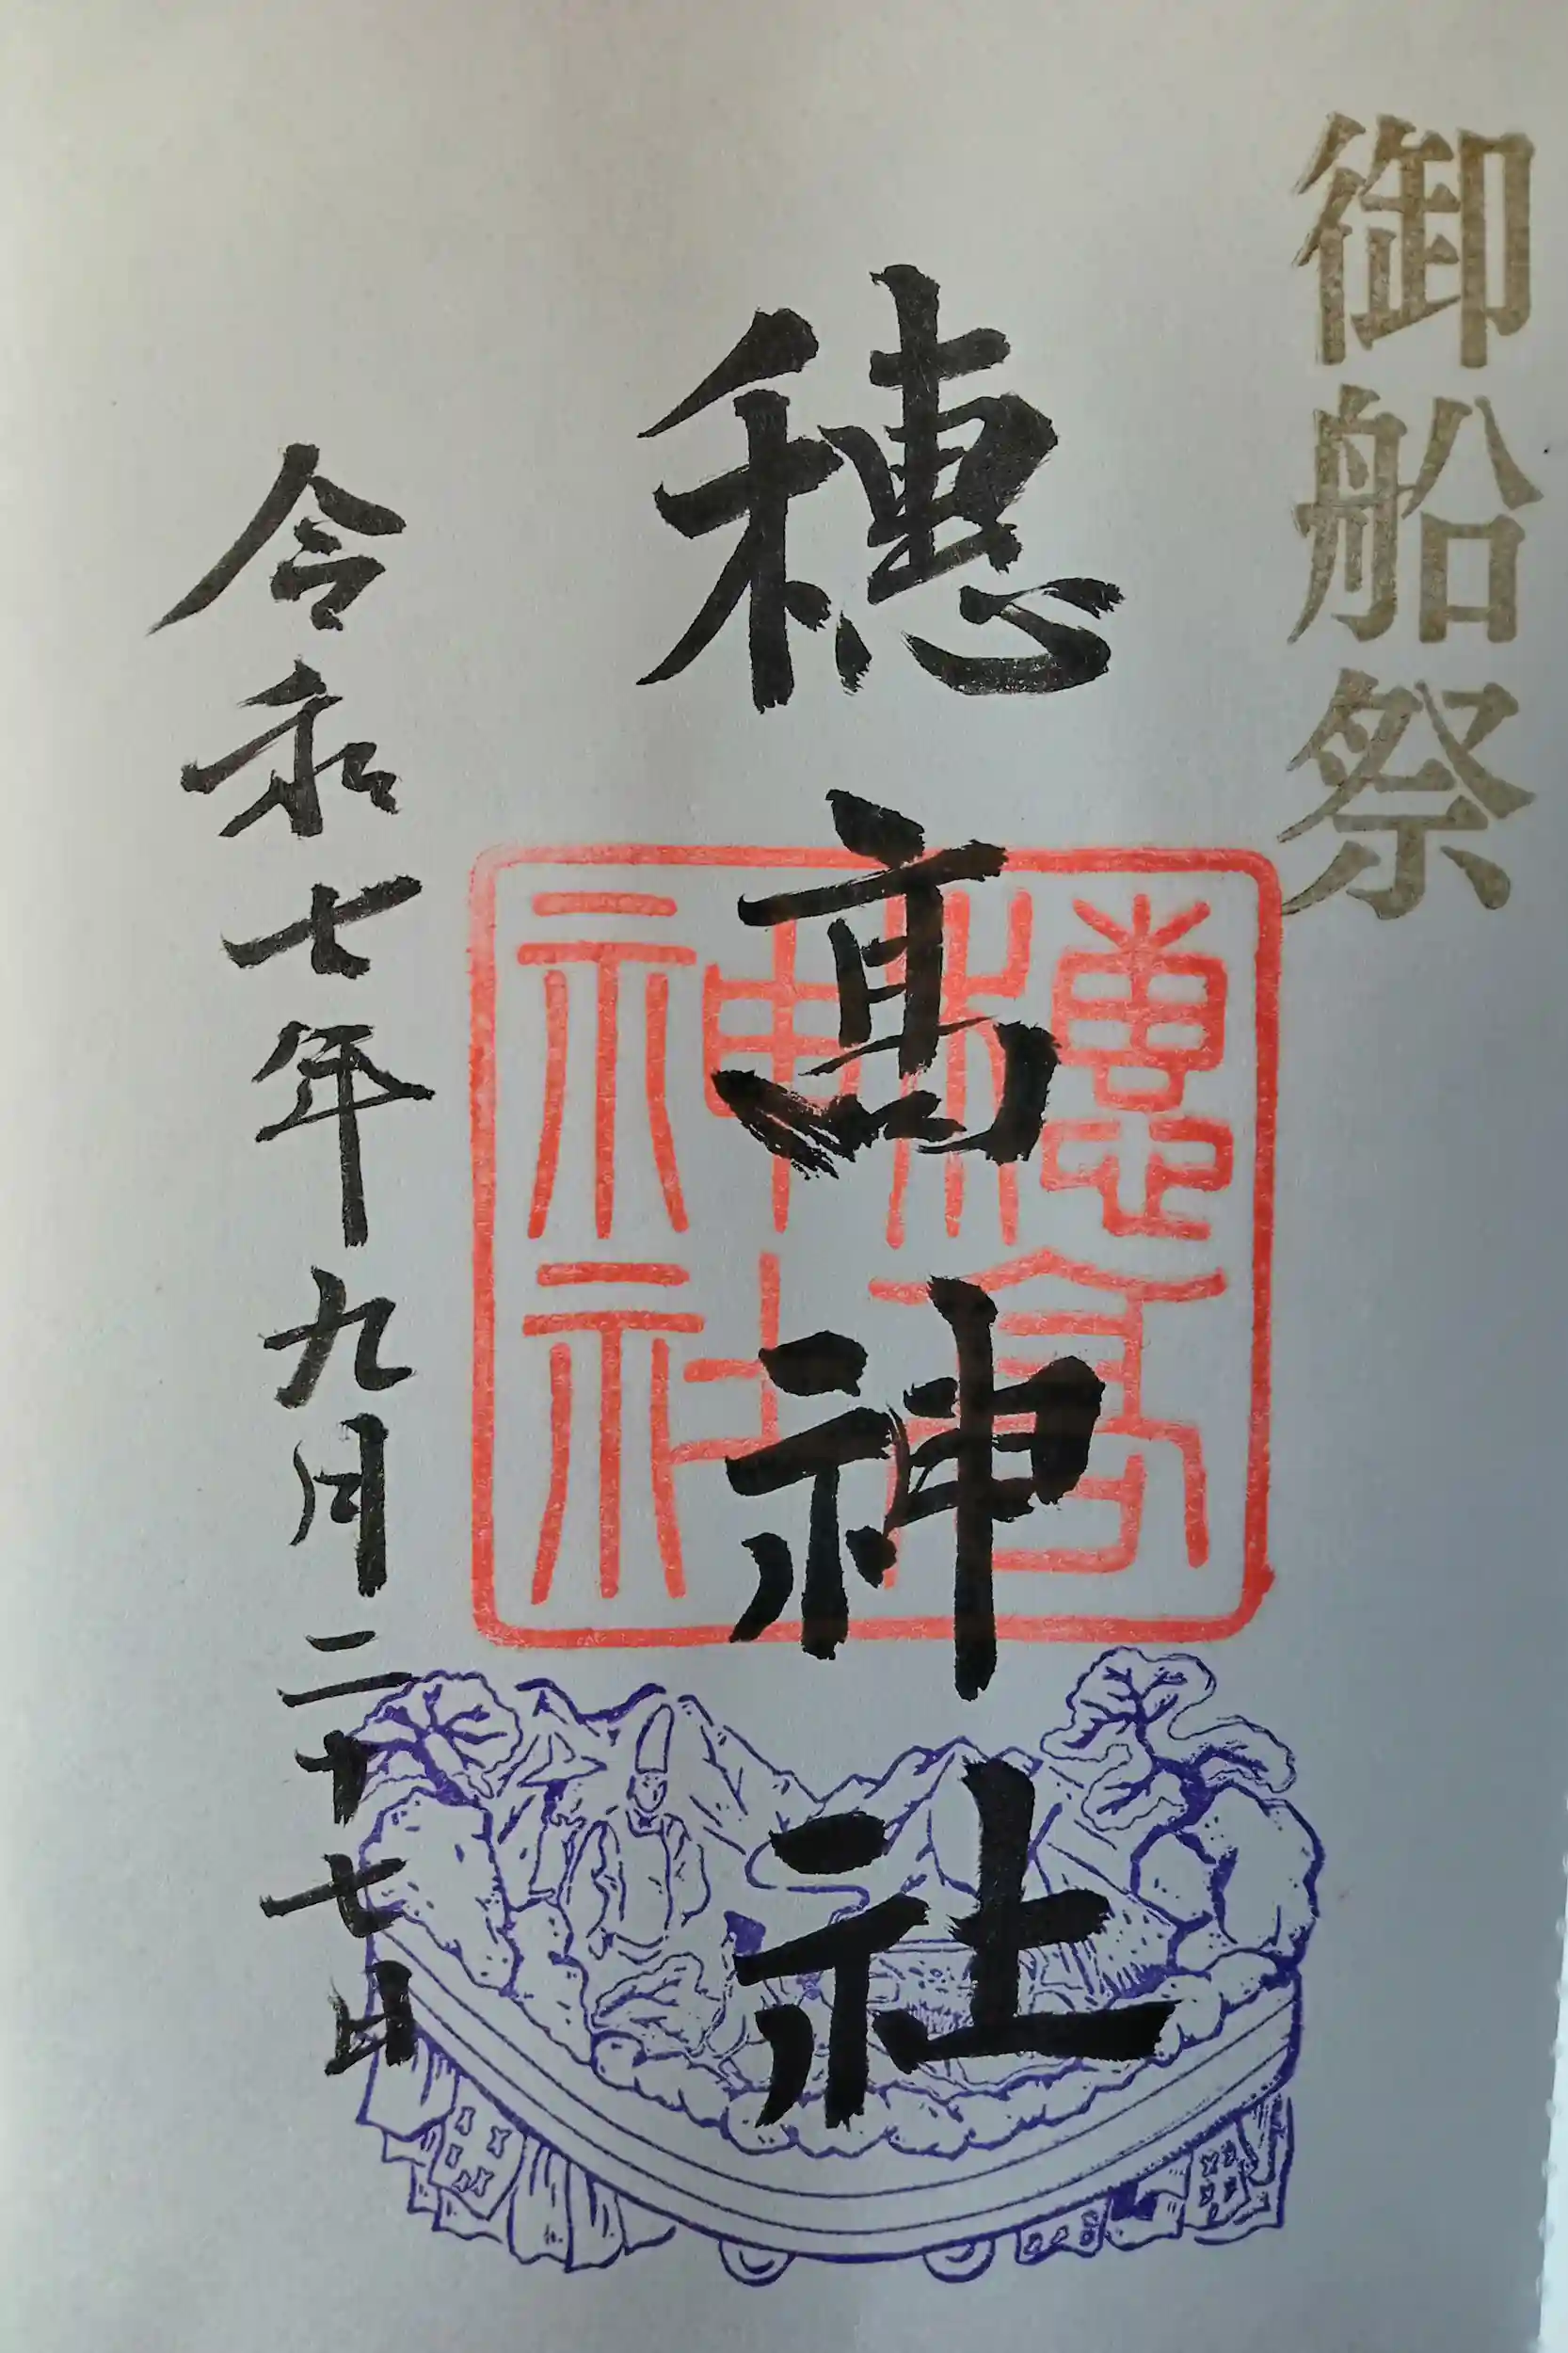 御船祭
穂高神社
穂高神社
令和七年九月二十七日